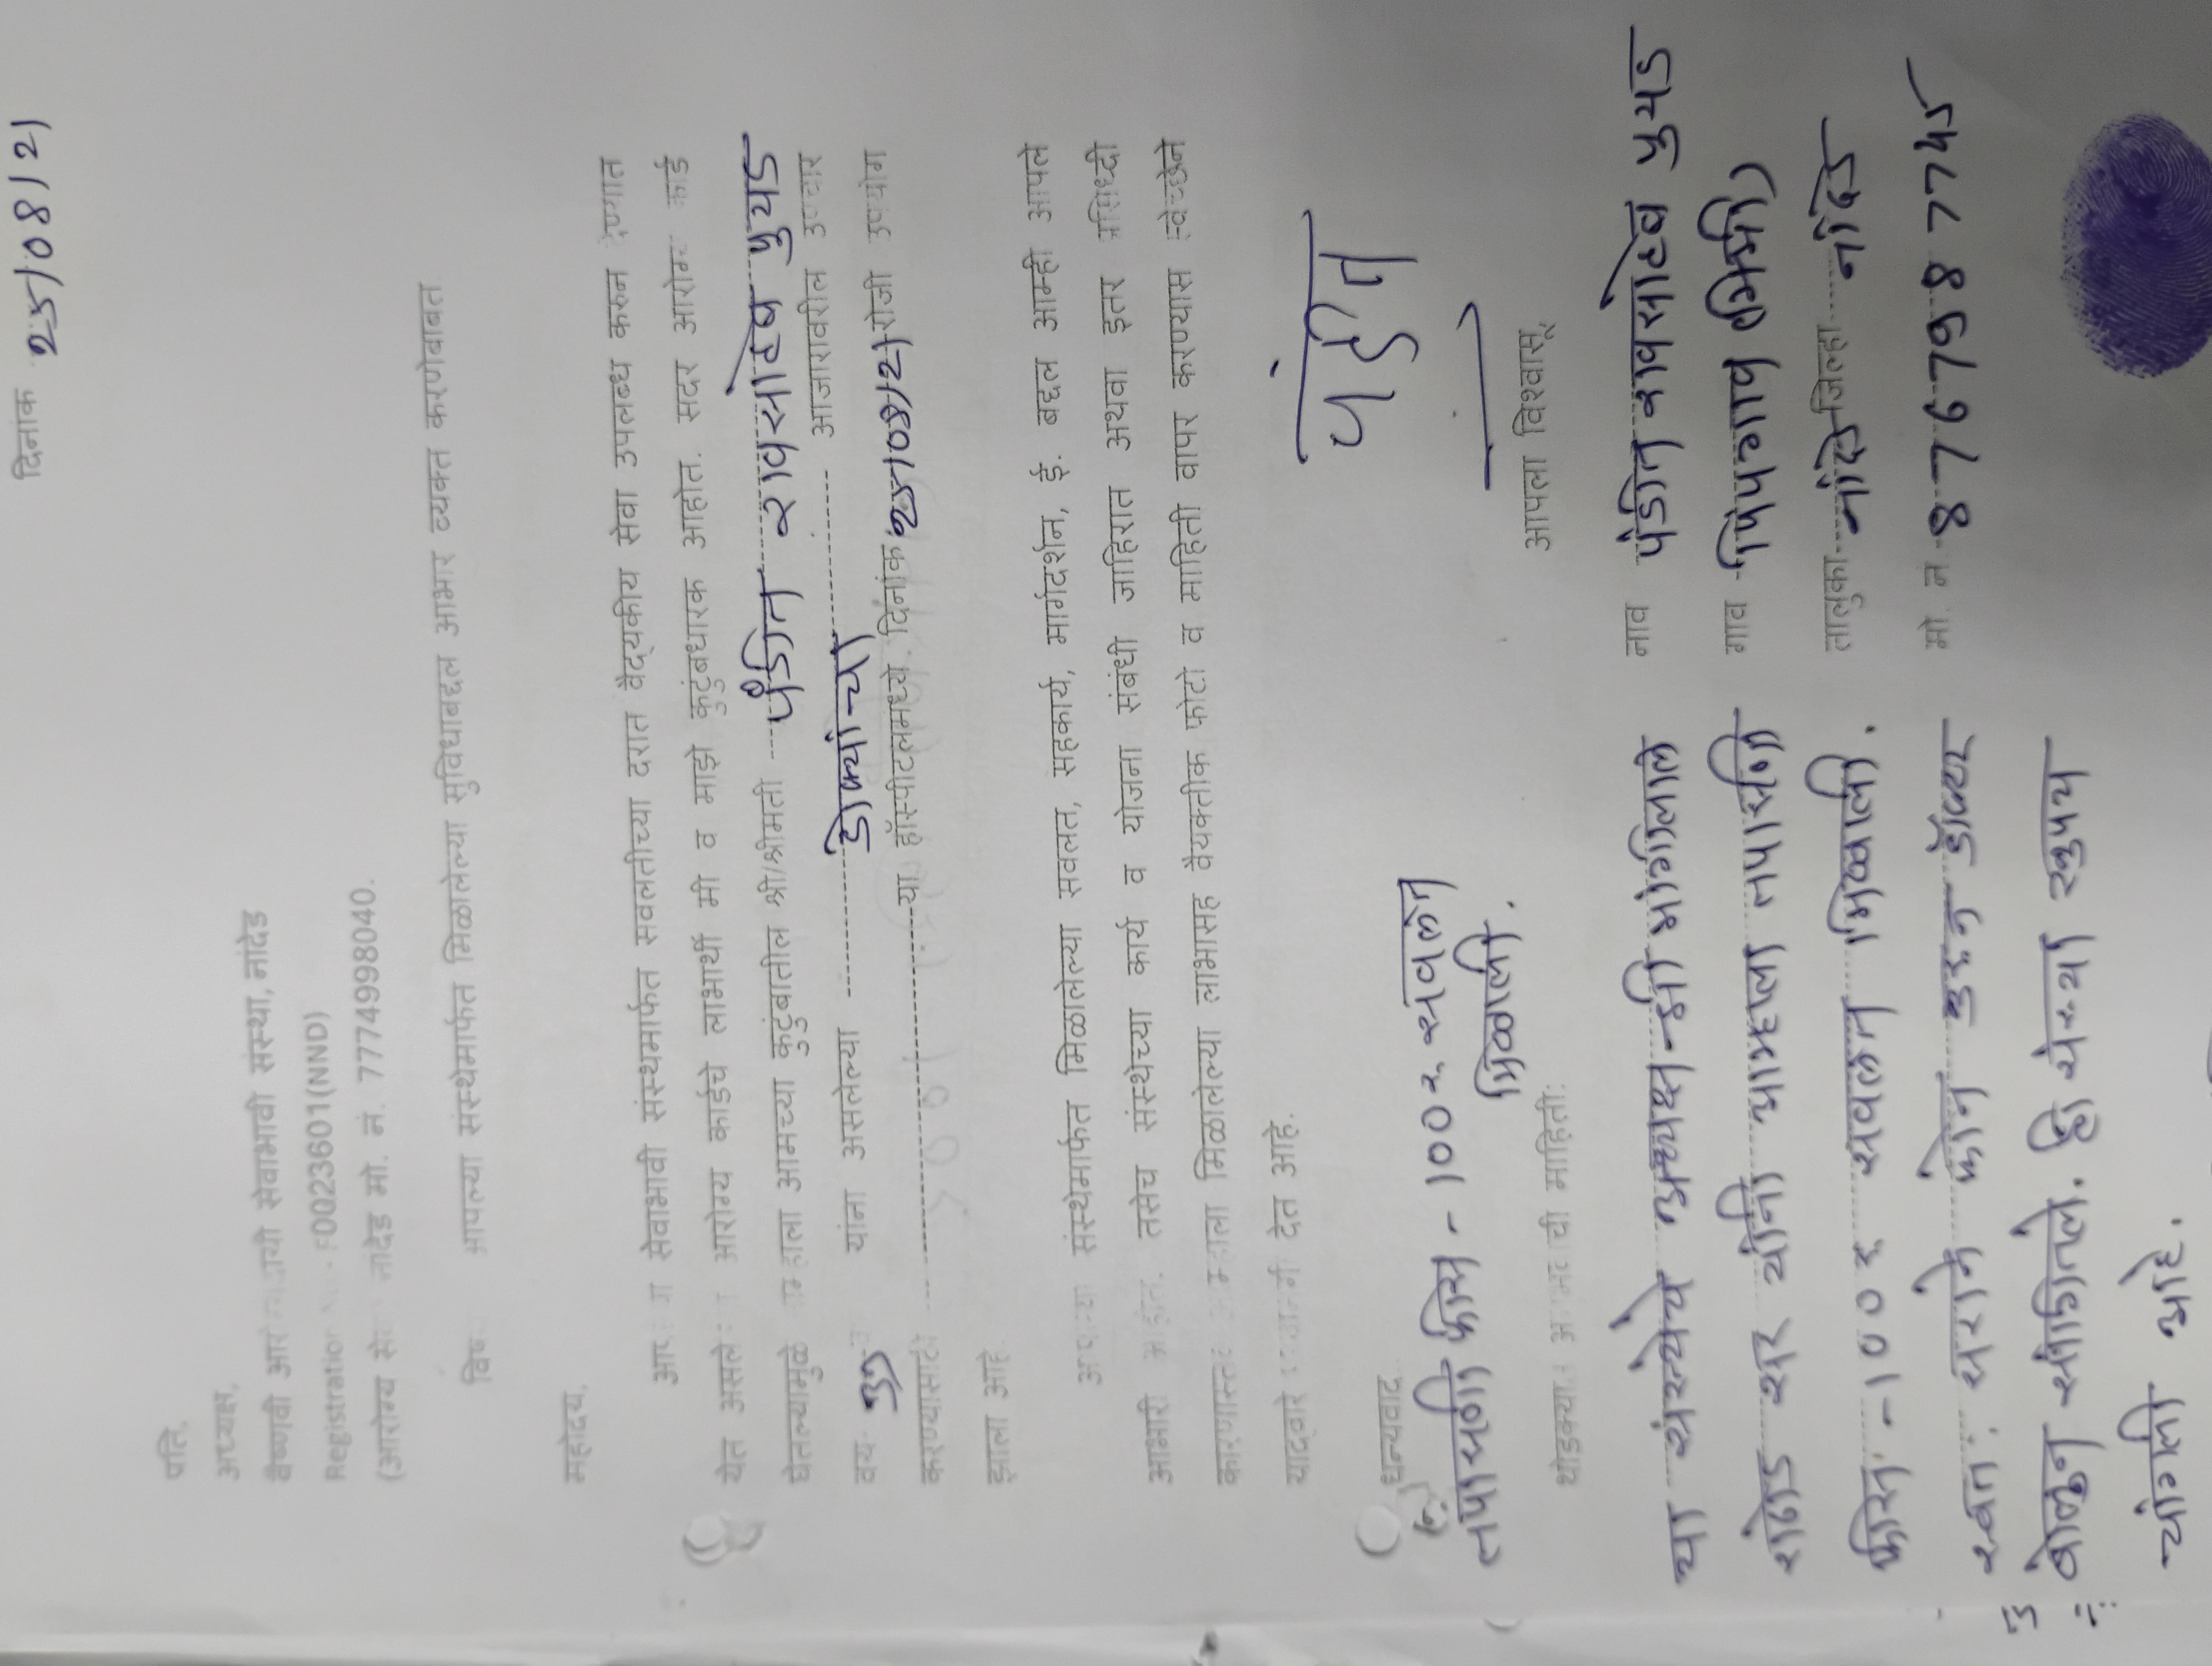 दिनांक 25/08/21
प्रति,
अध्यक्ष,
वैष्णवी सेवाभावी संस्था, नांदेड
Registration F0023601(NND)
(आरोग्य नांदेड मो. नं. 7774998040.
आपल्या संस्थेमार्फत मिळालेल्या सुविधाबद्दल आभार व्यक्त करणेबाबत
महोदय,
सेवाभावी संस्थेमार्फत सवलतीच्या दरात वैद्यकीय सेवा उपलब्ध करुन देण्यात
येत असलेल्या आरोग्य कार्डचे लाभार्थी मी व माझे कुटुंबधारक आहोत. सदर आरोग्य कार्ड
घेतल्यामुळे आम्हाला आमच्या कुटुंबातील श्री/श्रीमती पंडीत रावसाहेब पुयड
वय यांना असलेल्या डोळ्यांच्या आजारावरील उपचार
करण्यासाठी या हॉस्पीटलमध्ये दिनांक 25/08/21 रोजी उपयोग
झाला आहे.
संस्थेमार्फत मिळालेल्या सवलत, सहकार्य, मार्गदर्शन, ई. बद्दल आम्ही आपले
आभारी आहोत. तसेच संस्थेच्या कार्य व योजना संबंधी जाहिरात अथवा इतर प्रसिध्दी
कारणास्तव आम्हाला मिळालेल्या लाभासह वैयक्तीक फोटो व माहिती वापर करण्यास स्वेच्छेने
याद्वारे देत आहे.
धन्यवाद
तपासणी फीस - 100% सवलत
मिळाली.
पंडीत
आपला विश्वासू,
थोडक्यात ची माहिती:
नाव पंडीत रावसाहेब पुयड
गाव पिंपळगाव (मिश्री)
तालुका नांदेड जिल्हा नांदेड
मो. नं 8767988745
या संस्थेचे अध्यक्ष श्री
राठोड सर यांनी आम्हाला तपासणी
फीस - 100% सवलत मिळाली.
स्वतः सराने फोन करून डॉक्टर
बोलून सांगितले. ही संस्था खुपच
चांगली आहे.